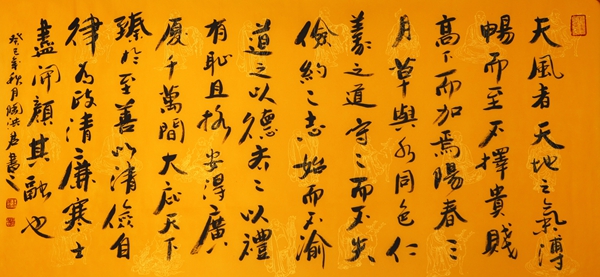 夫風者天地之氣溥
暢而至不擇貴賤
高下而加焉陽春二
月草與水同色仁
義之道守之而不失
儉約之志始而不渝
道之以德齊之以禮
有恥且格安得廣
廈千萬間大庇天下
臻於至善以清儉自
律為政清之廉寒士
盡開顏其融也
癸巳年秋月陶洪君書